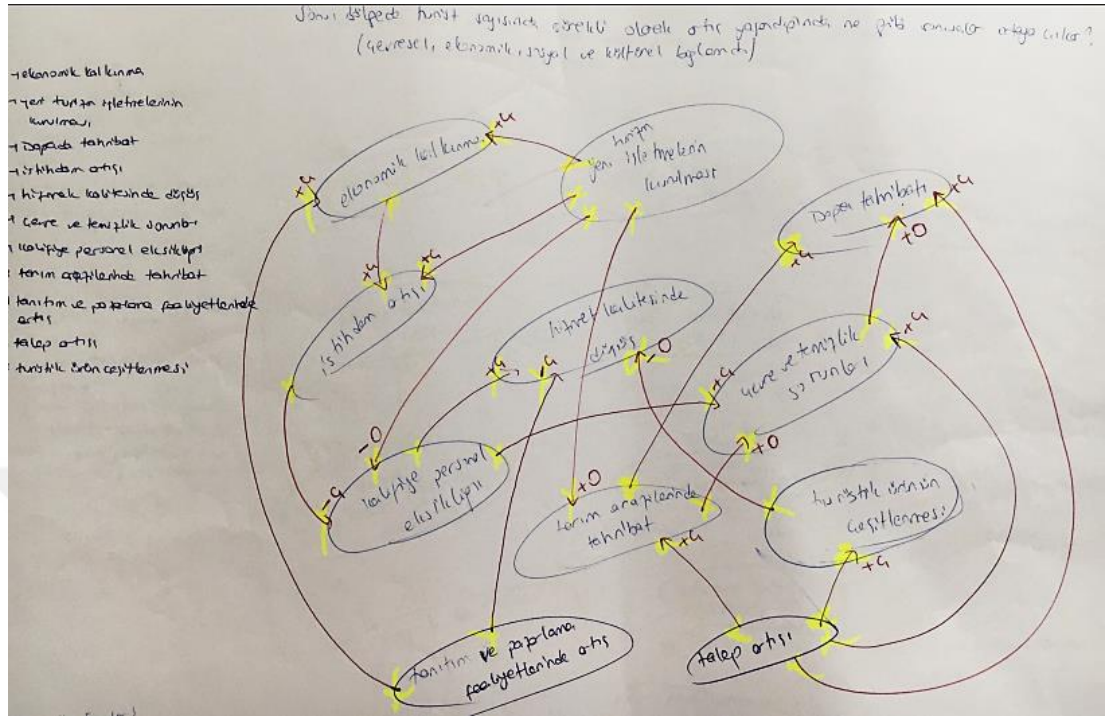 bölgede turist sayısında sürekli olarak artış yaşandığında ne gibi sonuçlar ortaya çıkar?
(çevresel, ekonomik, sosyal ve kültürel bağlamda)
→ ekonomik kalkınma
→ yeni turizm işletmelerinin
kurulması
→ Doğada tahribat
→ istihdam artışı
→ hizmet kalitesinde düşüş
çevre ve temizlik sorunları
kalifiye personel eksikliği
tarım arazilerinde tahribat
tanıtım ve pazarlama faaliyetlerinde
artış
talep artışı
turistik ürün çeşitlenmesi
ekonomik kalkınma
+4
+4
turizm
yeni işletmelerin
kurulması
Doğa tahribatı
+4
+4
+0
istihdam artışı
+4
+4
hizmet kalitesinde
düşüş
+4
-4
-0
çevre ve temizlik
sorunları
+4
+4
+0
kalifiye personel
eksikliği
-0
-4
tarım arazilerinde
tahribat
+0
+4
turistik ürünün
çeşitlenmesi
+4
tanıtım ve pazarlama
faaliyetlerinde artış
talep artışı